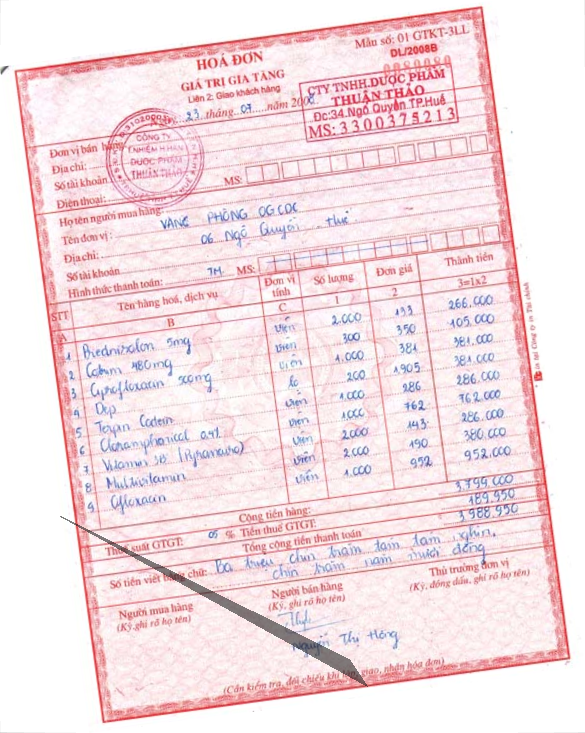 HOÁ ĐƠN
GIÁ TRỊ GIA TĂNG
Liên 2: Giao khách hàng
Mẫu số: 01 GTKT-3LL
DL/2008B
0080080
23 tháng 07 năm 2008
CTY TNHH.DƯỢC PHẨM
THUẬN THẢO
Đc:34.Ngô Quyền TP.Huế
MS: 3300375213
CÔNG TY
TRÁCH NHIỆM H.HẠN
DƯỢC PHẨM
THUẬN THẢO
Đơn vị bán hàng
Địa chỉ:
Số tài khoản
Điện thoại: MS:
Họ tên người mua hàng:
Tên đơn vị: VĂN PHÒNG OGCDC
Địa chỉ: 06 Ngô Quyền Huế
Số tài khoản
Hình thức thanh toán: TM MS:
STT Tên hàng hoá, dịch vụ Đơn vị tính Số lượng Đơn giá Thành tiền
A B C 1 2 3=1x2
1 Prednisolon 5mg viên 2.000 133 266.000
2 Cotrim 480mg viên 300 350 105.000
3 Cyprofloxacin 500mg viên 1.000 381 381.000
4 Dep lọ 200 1905 381.000
5 Terpin Codein viên 1.000 286 286.000
6 Cloramphenical 0.4% 1000 762 762.000
7 Vitamin 3B viên 2000 143 286.000
8 Multivitamin viên 2.000 190 380.000
9 Ofloxacin viên 1.000 952 952.000
Cộng tiền hàng: 3.799.000
Thuế suất GTGT: 05 % Tiền thuế GTGT: 189.950
Tổng cộng tiền thanh toán 3.988.950
Số tiền viết bằng chữ: Ba triệu chín trăm tám tám nghìn,
chín trăm năm mươi đồng
Người mua hàng Người bán hàng Thủ trưởng đơn vị
(Ký, ghi rõ họ tên) (Ký, ghi rõ họ tên) (Ký, đóng dấu, ghi rõ họ tên)
Nguyễn Thị Hồng
(Cần kiểm tra, đối chiếu khi lập, giao, nhận hóa đơn)